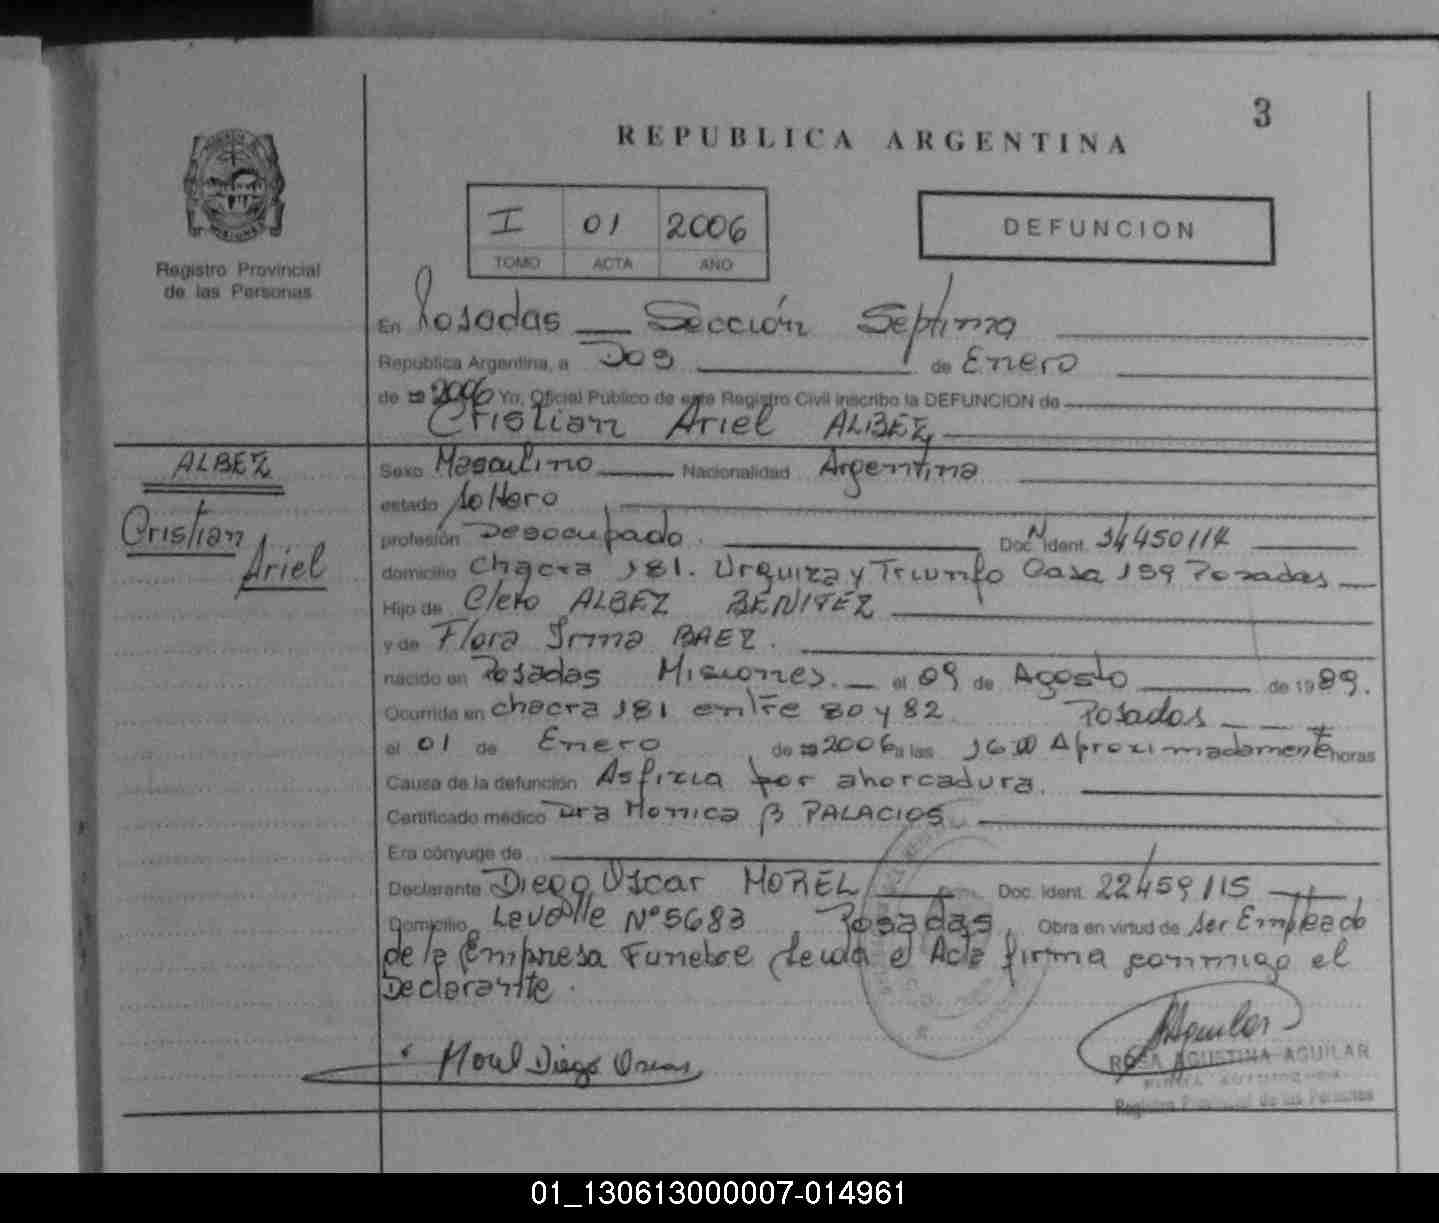 3
REPUBLICA ARGENTINA
I 01 2006
TOMO ACTA AÑO
DEFUNCION
Registro Provincial
de las Personas
En Posadas Sección Septima
República Argentina, a Dos de Enero
de 2006 Yo, Oficial Público de este Registro Civil inscribo la DEFUNCION de
Cristian Ariel ALBEZ
ALBEZ
Cristian
Ariel
Sexo Masculino Nacionalidad Argentina
estado soltero
profesión Desocupado. Doc. Ident. N° 34450114
domicilio chacra 181. Urquiza y Triunfo Casa 159 Posadas
Hijo de Cleto ALBEZ BENITEZ
y de Flora Irma BAEZ.
nacido en Posadas Misiones. el 09 de Agosto de 1989.
Ocurrida en chacra 181 entre 80 y 82 Posadas
el 01 de Enero de 2006 a las 16 00 Aproximadamente horas
Causa de la defunción Asfixia por ahorcadura.
Certificado médico Dra Monica B PALACIOS
Era cónyuge de
Declarante Diego Oscar MOREL Doc. Ident. 22459115
Domicilio Levalle N° 5683 Posadas Obra en virtud de ser Empleado
de la Empresa Funebre Leida el Acta firma conmigo el
Declarante.
Morel Diego Oscar
RAguilar
ROSA AGUSTINA AGUILAR
Registro Provincial de las Personas
01_130613000007-014961